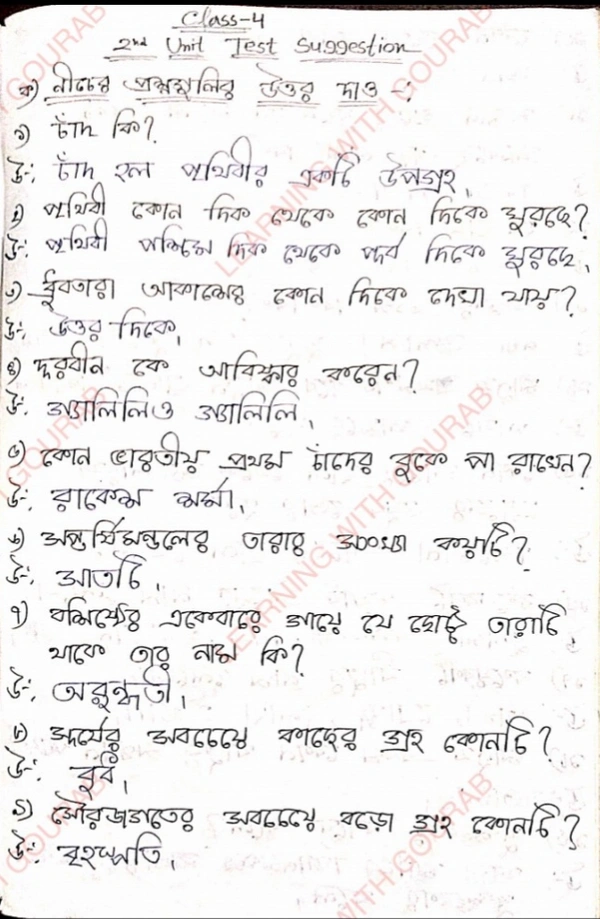 Class-4
2nd Unit Test Suggestion
ক) নীচের প্রশ্নগুলির উত্তর দাও -:
১) চাঁদ কি?
উঃ, চাঁদ হল পৃথিবীর একটি উপগ্রহ,
২) পৃথিবী কোন দিক থেকে কোন দিকে ঘুরছে?
উঃ, পৃথিবী পশ্চিম দিক থেকে পূর্ব দিকে ঘুরছে,
৩) ধ্রুবতারা আকাশের কোন দিকে দেখা যায়?
উঃ, উত্তর দিকে,
৪) দূরবীন কে আবিষ্কার করেন?
উঃ, গ্যালিলিও গ্যালিলি,
৫) কোন ভারতীয় প্রথম চাঁদের বুকে পা রাখেন?
উঃ, রাকেশ শর্মা,
৬) সপ্তর্ষিমন্ডলের তারার সংখ্যা কয়টি?
উঃ, সাতটি,
৭) বশিষ্ঠের একেবারে গায়ে যে ছোট্ট তারাটি
থাকে তার নাম কি?
উঃ, অরুন্ধতী,
৮) সূর্যের সবচেয়ে কাছের গ্রহ কোনটি?
উঃ, বুধ,
৯) সৌরজগতের সবচেয়ে বড়ো গ্রহ কোনটি?
উঃ, বৃহস্পতি,
LEARNING WITH GOURAB